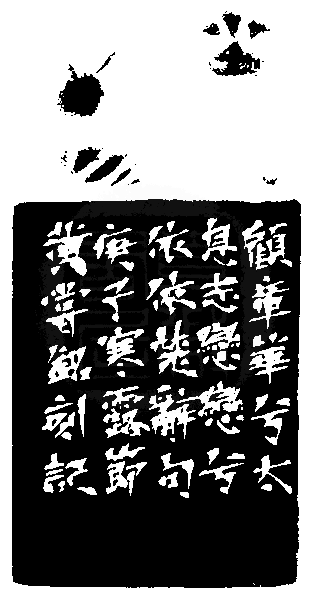 顧章華兮太
息志戀戀兮
依依楚辭句
庚子寒露節
黃嘗銘刻記